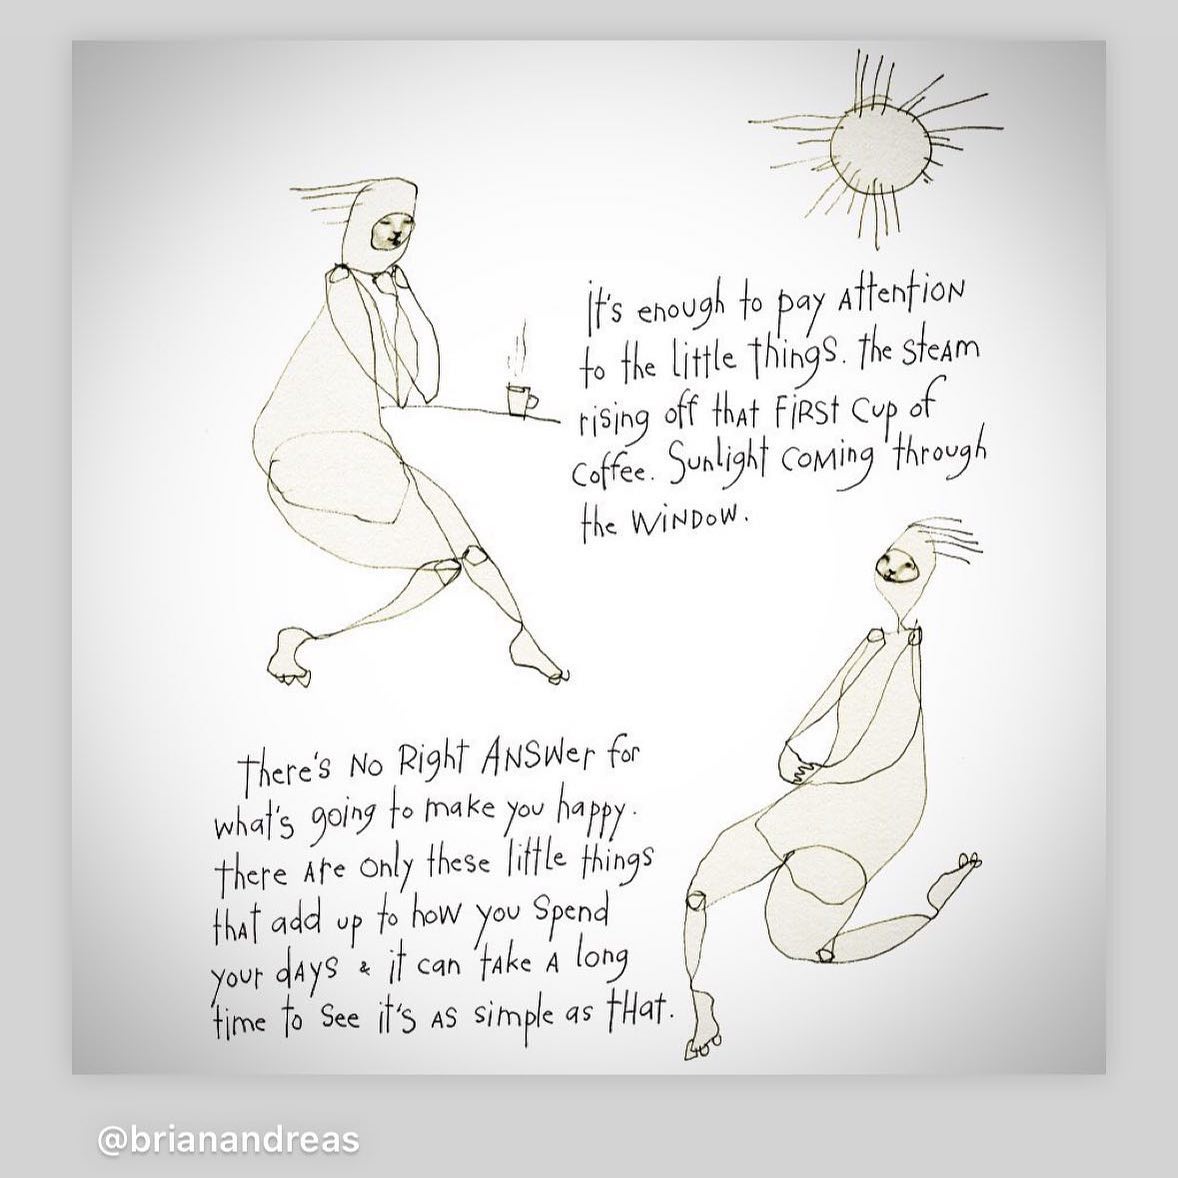 it's enough to pay attention
to the little things. the steam
rising off that first cup of
coffee. Sunlight coming through
the window.
there's no right answer for
what's going to make you happy.
there are only these little things
that add up to how you spend
your days & it can take a long
time to see it's as simple as that.
@brianandreas